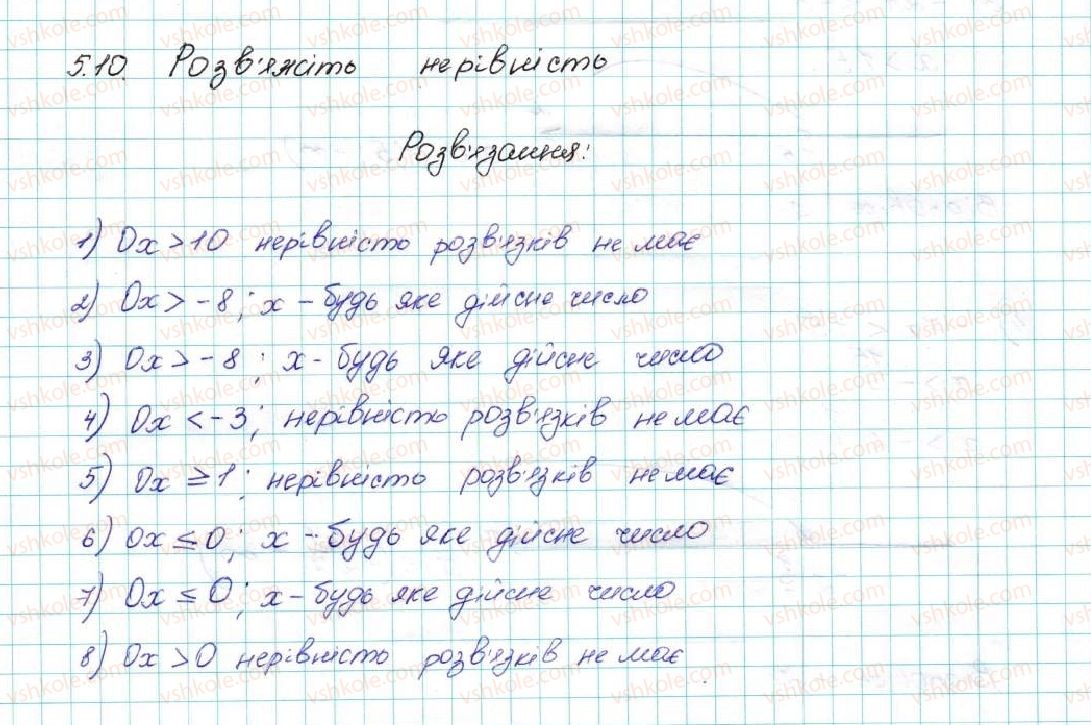 5.10. Розв'яжіть нерівність
Розв'язання:
1) 0x > 10 нерівність розв'язків не має
2) 0x > -8; x - будь яке дійсне число
3) 0x > -8; x - будь яке дійсне число
4) 0x < -3; нерівність розв'язків не має
5) 0x ≥ 1; нерівність розв'язків не має
6) 0x ≤ 0; x - будь яке дійсне число
7) 0x ≤ 0; x - будь яке дійсне число
8) 0x > 0 нерівність розв'язків не має
vshkole.com